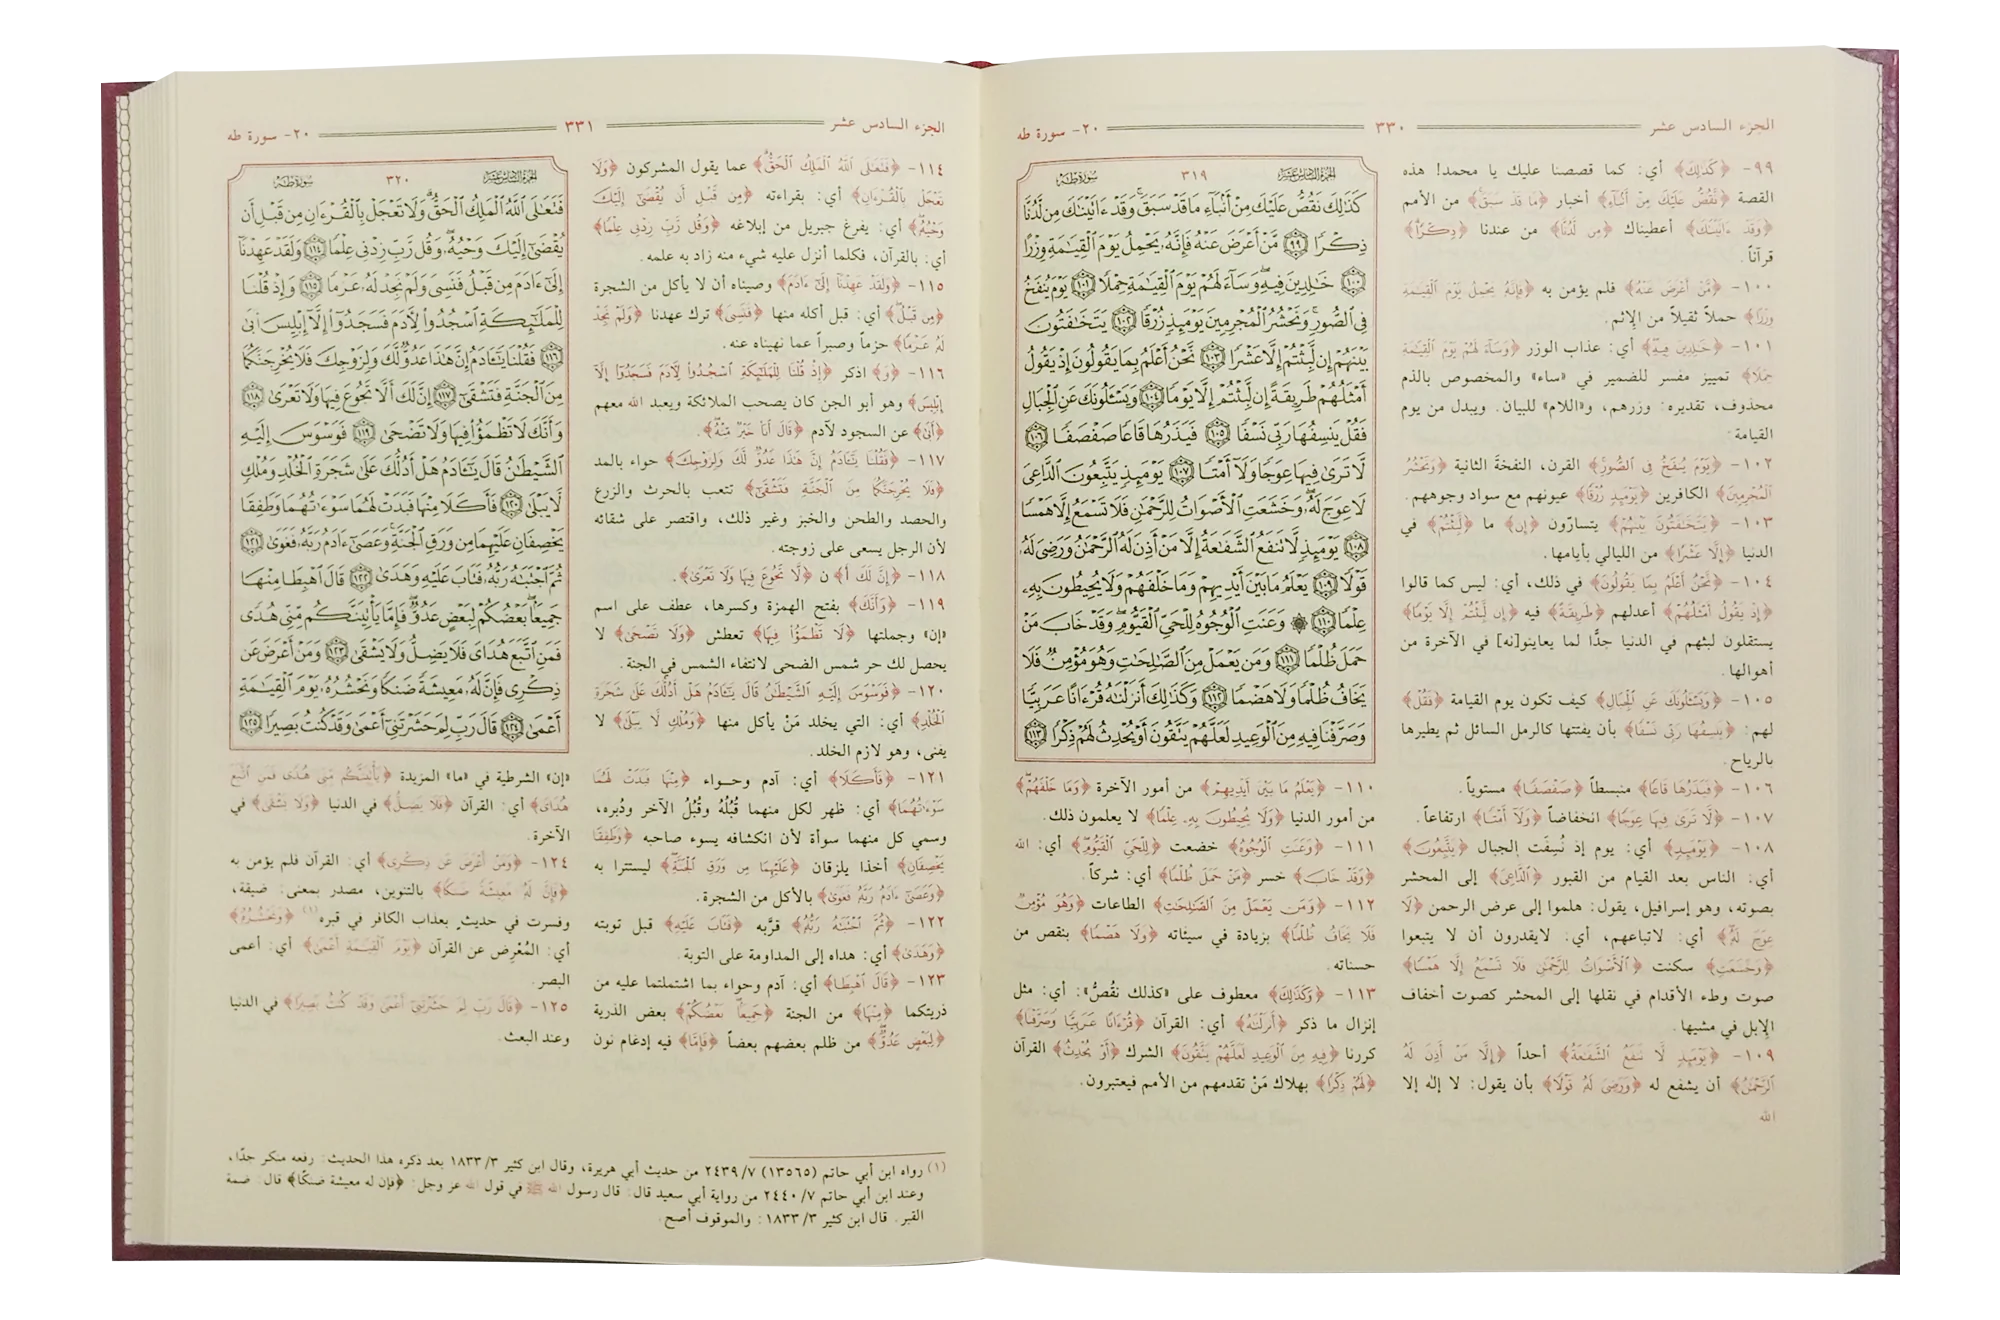 الجزء السادس عشر ٣٣٠ ٢٠- سورة طه
٩٩- ﴿كَذَٰلِكَ﴾ أي: كما قصصنا عليك يا محمد! هذه
القصة ﴿نَقُصُّ عَلَيْكَ مِنْ أَنۢبَآءِ﴾ أخبار ﴿مَا قَدْ سَبَقَ﴾ من الأمم
﴿وَقَدْ ءَاتَيْنَٰكَ﴾ أعطيناك ﴿مِن لَّدُنَّا﴾ من عندنا ﴿ذِكْرًا﴾
قرآناً.
١٠٠- ﴿مَّنْ أَعْرَضَ عَنْهُ﴾ فلم يؤمن به ﴿فَإِنَّهُۥ يَحْمِلُ يَوْمَ ٱلْقِيَٰمَةِ
وِزْرًا﴾ حملاً ثقيلاً من الإثم.
١٠١- ﴿خَٰلِدِينَ فِيهِ﴾ أي: عذاب الوزر ﴿وَسَآءَ لَهُمْ يَوْمَ ٱلْقِيَٰمَةِ
حِمْلًا﴾ تمييز مفسر للضمير في «ساء» والمخصوص بالذم
محذوف، تقديره: وزرهم، و«اللام» للبيان. ويبدل من يوم
القيامة.
١٠٢- ﴿يَوْمَ يُنفَخُ فِى ٱلصُّورِ﴾ القرن، النفخة الثانية ﴿وَنَحْشُرُ
ٱلْمُجْرِمِينَ﴾ الكافرين ﴿يَوْمَئِذٍ زُرْقًا﴾ عيونهم مع سواد وجوههم.
١٠٣- ﴿يَتَخَٰفَتُونَ بَيْنَهُمْ﴾ يتسارّون ﴿إِن﴾ ما ﴿لَّبِثْتُمْ﴾ في
الدنيا ﴿إِلَّا عَشْرًا﴾ من الليالي بأيامها.
١٠٤- ﴿نَّحْنُ أَعْلَمُ بِمَا يَقُولُونَ﴾ في ذلك، أي: ليس كما قالوا
﴿إِذْ يَقُولُ أَمْثَلُهُمْ﴾ أعدلهم ﴿طَرِيقَةً﴾ فيه ﴿إِن لَّبِثْتُمْ إِلَّا يَوْمًا﴾
يستقلون لبثهم في الدنيا جدًّا لما يعاينو[نه] في الآخرة من
أهوالها.
١٠٥- ﴿وَيَسْـَٔلُونَكَ عَنِ ٱلْجِبَالِ﴾ كيف تكون يوم القيامة ﴿فَقُلْ﴾
لهم: ﴿يَنسِفُهَا رَبِّى نَسْفًا﴾ بأن يفتتها كالرمل السائل ثم يطيرها
بالرياح.
١٠٦- ﴿فَيَذَرُهَا قَاعًا﴾ منبسطاً ﴿صَفْصَفًا﴾ مستوياً.
١٠٧- ﴿لَّا تَرَىٰ فِيهَا عِوَجًا﴾ انخفاضاً ﴿وَلَآ أَمْتًا﴾ ارتفاعاً.
١٠٨- ﴿يَوْمَئِذٍ﴾ أي: يوم إذ نُسِفَت الجبال ﴿يَتَّبِعُونَ﴾
أي: الناس بعد القيام من القبور ﴿ٱلدَّاعِىَ﴾ إلى المحشر
بصوته، وهو إسرافيل، يقول: هلموا إلى عرض الرحمن ﴿لَا
عِوَجَ لَهُۥ﴾ أي: لاتباعهم، أي: لايقدرون أن لا يتبعوا
﴿وَخَشَعَتِ﴾ سكنت ﴿ٱلْأَصْوَاتُ لِلرَّحْمَٰنِ فَلَا تَسْمَعُ إِلَّا هَمْسًا﴾
صوت وطء الأقدام في نقلها إلى المحشر كصوت أخفاف
الإبل في مشيها.
١٠٩- ﴿يَوْمَئِذٍ لَّا تَنفَعُ ٱلشَّفَٰعَةُ﴾ أحداً ﴿إِلَّا مَنْ أَذِنَ لَهُ
ٱلرَّحْمَٰنُ﴾ أن يشفع له ﴿وَرَضِىَ لَهُۥ قَوْلًا﴾ بأن يقول: لا إله إلا
الله
سورة طه ٣١٩ الجزء السادس عشر
كَذَٰلِكَ نَقُصُّ عَلَيْكَ مِنْ أَنۢبَآءِ مَا قَدْ سَبَقَ وَقَدْ ءَاتَيْنَٰكَ مِن لَّدُنَّا
ذِكْرًا ٩٩ مَّنْ أَعْرَضَ عَنْهُ فَإِنَّهُۥ يَحْمِلُ يَوْمَ ٱلْقِيَٰمَةِ وِزْرًا
١٠٠ خَٰلِدِينَ فِيهِ وَسَآءَ لَهُمْ يَوْمَ ٱلْقِيَٰمَةِ حِمْلًا ١٠١ يَوْمَ يُنفَخُ
فِى ٱلصُّورِ وَنَحْشُرُ ٱلْمُجْرِمِينَ يَوْمَئِذٍ زُرْقًا ١٠٢ يَتَخَٰفَتُونَ
بَيْنَهُمْ إِن لَّبِثْتُمْ إِلَّا عَشْرًا ١٠٣ نَّحْنُ أَعْلَمُ بِمَا يَقُولُونَ إِذْ يَقُولُ
أَمْثَلُهُمْ طَرِيقَةً إِن لَّبِثْتُمْ إِلَّا يَوْمًا ١٠٤ وَيَسْـَٔلُونَكَ عَنِ ٱلْجِبَالِ
فَقُلْ يَنسِفُهَا رَبِّى نَسْفًا ١٠٥ فَيَذَرُهَا قَاعًا صَفْصَفًا ١٠٦
لَّا تَرَىٰ فِيهَا عِوَجًا وَلَآ أَمْتًا ١٠٧ يَوْمَئِذٍ يَتَّبِعُونَ ٱلدَّاعِىَ
لَا عِوَجَ لَهُۥ وَخَشَعَتِ ٱلْأَصْوَاتُ لِلرَّحْمَٰنِ فَلَا تَسْمَعُ إِلَّا هَمْسًا
١٠٨ يَوْمَئِذٍ لَّا تَنفَعُ ٱلشَّفَٰعَةُ إِلَّا مَنْ أَذِنَ لَهُ ٱلرَّحْمَٰنُ وَرَضِىَ لَهُۥ
قَوْلًا ١٠٩ يَعْلَمُ مَا بَيْنَ أَيْدِيهِمْ وَمَا خَلْفَهُمْ وَلَا يُحِيطُونَ بِهِۦ
عِلْمًا ١١٠ ۞ وَعَنَتِ ٱلْوُجُوهُ لِلْحَىِّ ٱلْقَيُّومِ وَقَدْ خَابَ مَنْ
حَمَلَ ظُلْمًا ١١١ وَمَن يَعْمَلْ مِنَ ٱلصَّٰلِحَٰتِ وَهُوَ مُؤْمِنٌ فَلَا
يَخَافُ ظُلْمًا وَلَا هَضْمًا ١١٢ وَكَذَٰلِكَ أَنزَلْنَٰهُ قُرْءَانًا عَرَبِيًّا
وَصَرَّفْنَا فِيهِ مِنَ ٱلْوَعِيدِ لَعَلَّهُمْ يَتَّقُونَ أَوْ يُحْدِثُ لَهُمْ ذِكْرًا ١١٣
١١٠- ﴿يَعْلَمُ مَا بَيْنَ أَيْدِيهِمْ﴾ من أمور الآخرة ﴿وَمَا خَلْفَهُمْ﴾
من أمور الدنيا ﴿وَلَا يُحِيطُونَ بِهِۦ عِلْمًا﴾ لا يعلمون ذلك.
١١١- ﴿وَعَنَتِ ٱلْوُجُوهُ﴾ خضعت ﴿لِلْحَىِّ ٱلْقَيُّومِ﴾ أي: الله
﴿وَقَدْ خَابَ﴾ خسر ﴿مَنْ حَمَلَ ظُلْمًا﴾ أي: شركاً.
١١٢- ﴿وَمَن يَعْمَلْ مِنَ ٱلصَّٰلِحَٰتِ﴾ الطاعات ﴿وَهُوَ مُؤْمِنٌ
فَلَا يَخَافُ ظُلْمًا﴾ بزيادة في سيئاته ﴿وَلَا هَضْمًا﴾ بنقص من
حسناته.
١١٣- ﴿وَكَذَٰلِكَ﴾ معطوف على «كذلك نقُصُّ»: أي: مثل
إنزال ما ذكر ﴿أَنزَلْنَٰهُ﴾ أي: القرآن ﴿قُرْءَانًا عَرَبِيًّا وَصَرَّفْنَا﴾
كررنا ﴿فِيهِ مِنَ ٱلْوَعِيدِ لَعَلَّهُمْ يَتَّقُونَ﴾ الشرك ﴿أَوْ يُحْدِثُ﴾ القرآن
﴿لَهُمْ ذِكْرًا﴾ بهلاك مَنْ تقدمهم من الأمم فيعتبرون.
الجزء السادس عشر ٣٣١ ٢٠- سورة طه
١١٤- ﴿فَتَعَٰلَى ٱللَّهُ ٱلْمَلِكُ ٱلْحَقُّ﴾ عما يقول المشركون ﴿وَلَا
تَعْجَلْ بِٱلْقُرْءَانِ﴾ أي: بقراءته ﴿مِن قَبْلِ أَن يُقْضَىٰٓ إِلَيْكَ
وَحْيُهُۥ﴾ أي: يفرغ جبريل من إبلاغه ﴿وَقُل رَّبِّ زِدْنِى عِلْمًا﴾
أي: بالقرآن، فكلما أنزل عليه شيء منه زاد به علمه.
١١٥- ﴿وَلَقَدْ عَهِدْنَآ إِلَىٰٓ ءَادَمَ﴾ وصيناه أن لا يأكل من الشجرة
﴿مِن قَبْلُ﴾ أي: قبل أكله منها ﴿فَنَسِىَ﴾ ترك عهدنا ﴿وَلَمْ نَجِدْ
لَهُۥ عَزْمًا﴾ حزماً وصبراً عما نهيناه عنه.
١١٦- ﴿وَ﴾ اذكر ﴿إِذْ قُلْنَا لِلْمَلَٰٓئِكَةِ ٱسْجُدُوا۟ لِءَادَمَ فَسَجَدُوٓا۟ إِلَّآ
إِبْلِيسَ﴾ وهو أبو الجن كان يصحب الملائكة ويعبد الله معهم
﴿أَبَىٰ﴾ عن السجود لآدم ﴿قَالَ أَنَا۠ خَيْرٌ مِّنْهُ﴾.
١١٧- ﴿فَقُلْنَا يَٰٓـَٔادَمُ إِنَّ هَٰذَا عَدُوٌّ لَّكَ وَلِزَوْجِكَ﴾ حواء بالمد
﴿فَلَا يُخْرِجَنَّكُمَا مِنَ ٱلْجَنَّةِ فَتَشْقَىٰٓ﴾ تتعب بالحرث والزرع
والحصد والطحن والخبز وغير ذلك، واقتصر على شقائه
لأن الرجل يسعى على زوجته.
١١٨- ﴿إِنَّ لَكَ أَ﴾ ن ﴿لَّا تَجُوعَ فِيهَا وَلَا تَعْرَىٰ﴾.
١١٩- ﴿وَأَنَّكَ﴾ بفتح الهمزة وكسرها، عطف على اسم
«إن» وجملتها ﴿لَا تَظْمَؤُا۟ فِيهَا﴾ تعطش ﴿وَلَا تَضْحَىٰ﴾ لا
يحصل لك حر شمس الضحى لانتفاء الشمس في الجنة.
١٢٠- ﴿فَوَسْوَسَ إِلَيْهِ ٱلشَّيْطَٰنُ قَالَ يَٰٓـَٔادَمُ هَلْ أَدُلُّكَ عَلَىٰ شَجَرَةِ
ٱلْخُلْدِ﴾ أي: التي يخلد مَنْ يأكل منها ﴿وَمُلْكٍ لَّا يَبْلَىٰ﴾ لا
يفنى، وهو لازم الخلد.
١٢١- ﴿فَأَكَلَا﴾ أي: آدم وحـواء ﴿مِنْهَا فَبَدَتْ لَهُمَا
سَوْءَٰتُهُمَا﴾ أي: ظهر لكل منهما قُبُلُهُ وقُبُلُ الآخر ودُبره،
وسمي كل منهما سوأة لأن انكشافه يسوء صاحبه ﴿وَطَفِقَا
يَخْصِفَانِ﴾ أخذا يلزقان ﴿عَلَيْهِمَا مِن وَرَقِ ٱلْجَنَّةِ﴾ ليستترا به
﴿وَعَصَىٰٓ ءَادَمُ رَبَّهُۥ فَغَوَىٰ﴾ بالأكل من الشجرة.
١٢٢- ﴿ثُمَّ ٱجْتَبَٰهُ رَبُّهُۥ﴾ قرَّبه ﴿فَتَابَ عَلَيْهِ﴾ قبل توبته
﴿وَهَدَىٰ﴾ أي: هداه إلى المداومة على التوبة.
١٢٣- ﴿قَالَ ٱهْبِطَا﴾ أي: آدم وحواء بما اشتملتما عليه من
ذريتكما ﴿مِنْهَا﴾ من الجنة ﴿جَمِيعًۢا بَعْضُكُمْ﴾ بعض الذرية
﴿لِبَعْضٍ عَدُوٌّ﴾ من ظلم بعضهم بعضاً ﴿فَإِمَّا﴾ فيه إدغام نون
سورة طه ٣٢٠ الجزء السادس عشر
فَتَعَٰلَى ٱللَّهُ ٱلْمَلِكُ ٱلْحَقُّ وَلَا تَعْجَلْ بِٱلْقُرْءَانِ مِن قَبْلِ أَن
يُقْضَىٰٓ إِلَيْكَ وَحْيُهُۥ وَقُل رَّبِّ زِدْنِى عِلْمًا ١١٤ وَلَقَدْ عَهِدْنَآ
إِلَىٰٓ ءَادَمَ مِن قَبْلُ فَنَسِىَ وَلَمْ نَجِدْ لَهُۥ عَزْمًا ١١٥ وَإِذْ قُلْنَا
لِلْمَلَٰٓئِكَةِ ٱسْجُدُوا۟ لِءَادَمَ فَسَجَدُوٓا۟ إِلَّآ إِبْلِيسَ أَبَىٰ
١١٦ فَقُلْنَا يَٰٓـَٔادَمُ إِنَّ هَٰذَا عَدُوٌّ لَّكَ وَلِزَوْجِكَ فَلَا يُخْرِجَنَّكُمَا
مِنَ ٱلْجَنَّةِ فَتَشْقَىٰٓ ١١٧ إِنَّ لَكَ أَلَّا تَجُوعَ فِيهَا وَلَا تَعْرَىٰ ١١٨
وَأَنَّكَ لَا تَظْمَؤُا۟ فِيهَا وَلَا تَضْحَىٰ ١١٩ فَوَسْوَسَ إِلَيْهِ
ٱلشَّيْطَٰنُ قَالَ يَٰٓـَٔادَمُ هَلْ أَدُلُّكَ عَلَىٰ شَجَرَةِ ٱلْخُلْدِ وَمُلْكٍ
لَّا يَبْلَىٰ ١٢٠ فَأَكَلَا مِنْهَا فَبَدَتْ لَهُمَا سَوْءَٰتُهُمَا وَطَفِقَا
يَخْصِفَانِ عَلَيْهِمَا مِن وَرَقِ ٱلْجَنَّةِ وَعَصَىٰٓ ءَادَمُ رَبَّهُۥ فَغَوَىٰ ١٢١
ثُمَّ ٱجْتَبَٰهُ رَبُّهُۥ فَتَابَ عَلَيْهِ وَهَدَىٰ ١٢٢ قَالَ ٱهْبِطَا مِنْهَا
جَمِيعًۢا بَعْضُكُمْ لِبَعْضٍ عَدُوٌّ فَإِمَّا يَأْتِيَنَّكُم مِّنِّى هُدًى
فَمَنِ ٱتَّبَعَ هُدَاىَ فَلَا يَضِلُّ وَلَا يَشْقَىٰ ١٢٣ وَمَنْ أَعْرَضَ عَن
ذِكْرِى فَإِنَّ لَهُۥ مَعِيشَةً ضَنكًا وَنَحْشُرُهُۥ يَوْمَ ٱلْقِيَٰمَةِ
أَعْمَىٰ ١٢٤ قَالَ رَبِّ لِمَ حَشَرْتَنِىٓ أَعْمَىٰ وَقَدْ كُنتُ بَصِيرًا ١٢٥
«إن» الشرطية في «ما» المزيدة ﴿يَأْتِيَنَّكُم مِّنِّى هُدًى فَمَنِ ٱتَّبَعَ
هُدَاىَ﴾ أي: القرآن ﴿فَلَا يَضِلُّ﴾ في الدنيا ﴿وَلَا يَشْقَىٰ﴾ في
الآخرة.
١٢٤- ﴿وَمَنْ أَعْرَضَ عَن ذِكْرِى﴾ أي: القرآن فلم يؤمن به
﴿فَإِنَّ لَهُۥ مَعِيشَةً ضَنكًا﴾ بالتنوين، مصدر بمعنى: ضيقة،
وفسرت في حديثٍ بعذاب الكافر في قبره(١) ﴿وَنَحْشُرُهُۥ﴾
أي: المُعْرِض عن القرآن ﴿يَوْمَ ٱلْقِيَٰمَةِ أَعْمَىٰ﴾ أي: أعمى
البصر.
١٢٥- ﴿قَالَ رَبِّ لِمَ حَشَرْتَنِىٓ أَعْمَىٰ وَقَدْ كُنتُ بَصِيرًا﴾ في الدنيا
وعند البعث.
(١) رواه ابن أبي حاتم (١٣٥٦٥) ٧/ ٢٤٣٩ من حديث أبي هريرة، وقال ابن كثير ٣/ ١٨٣٣ بعد ذكره هذا الحديث: رفعه منكر جدًا،
وعند ابن أبي حاتم ٧/ ٢٤٤٠ من رواية أبي سعيد قال: قال رسول الله ﷺ في قول الله عز وجل: ﴿فإن له معيشة ضنكًا﴾ قال: ضمة
القبر. قال ابن كثير ٣/ ١٨٣٣: والموقوف أصح.